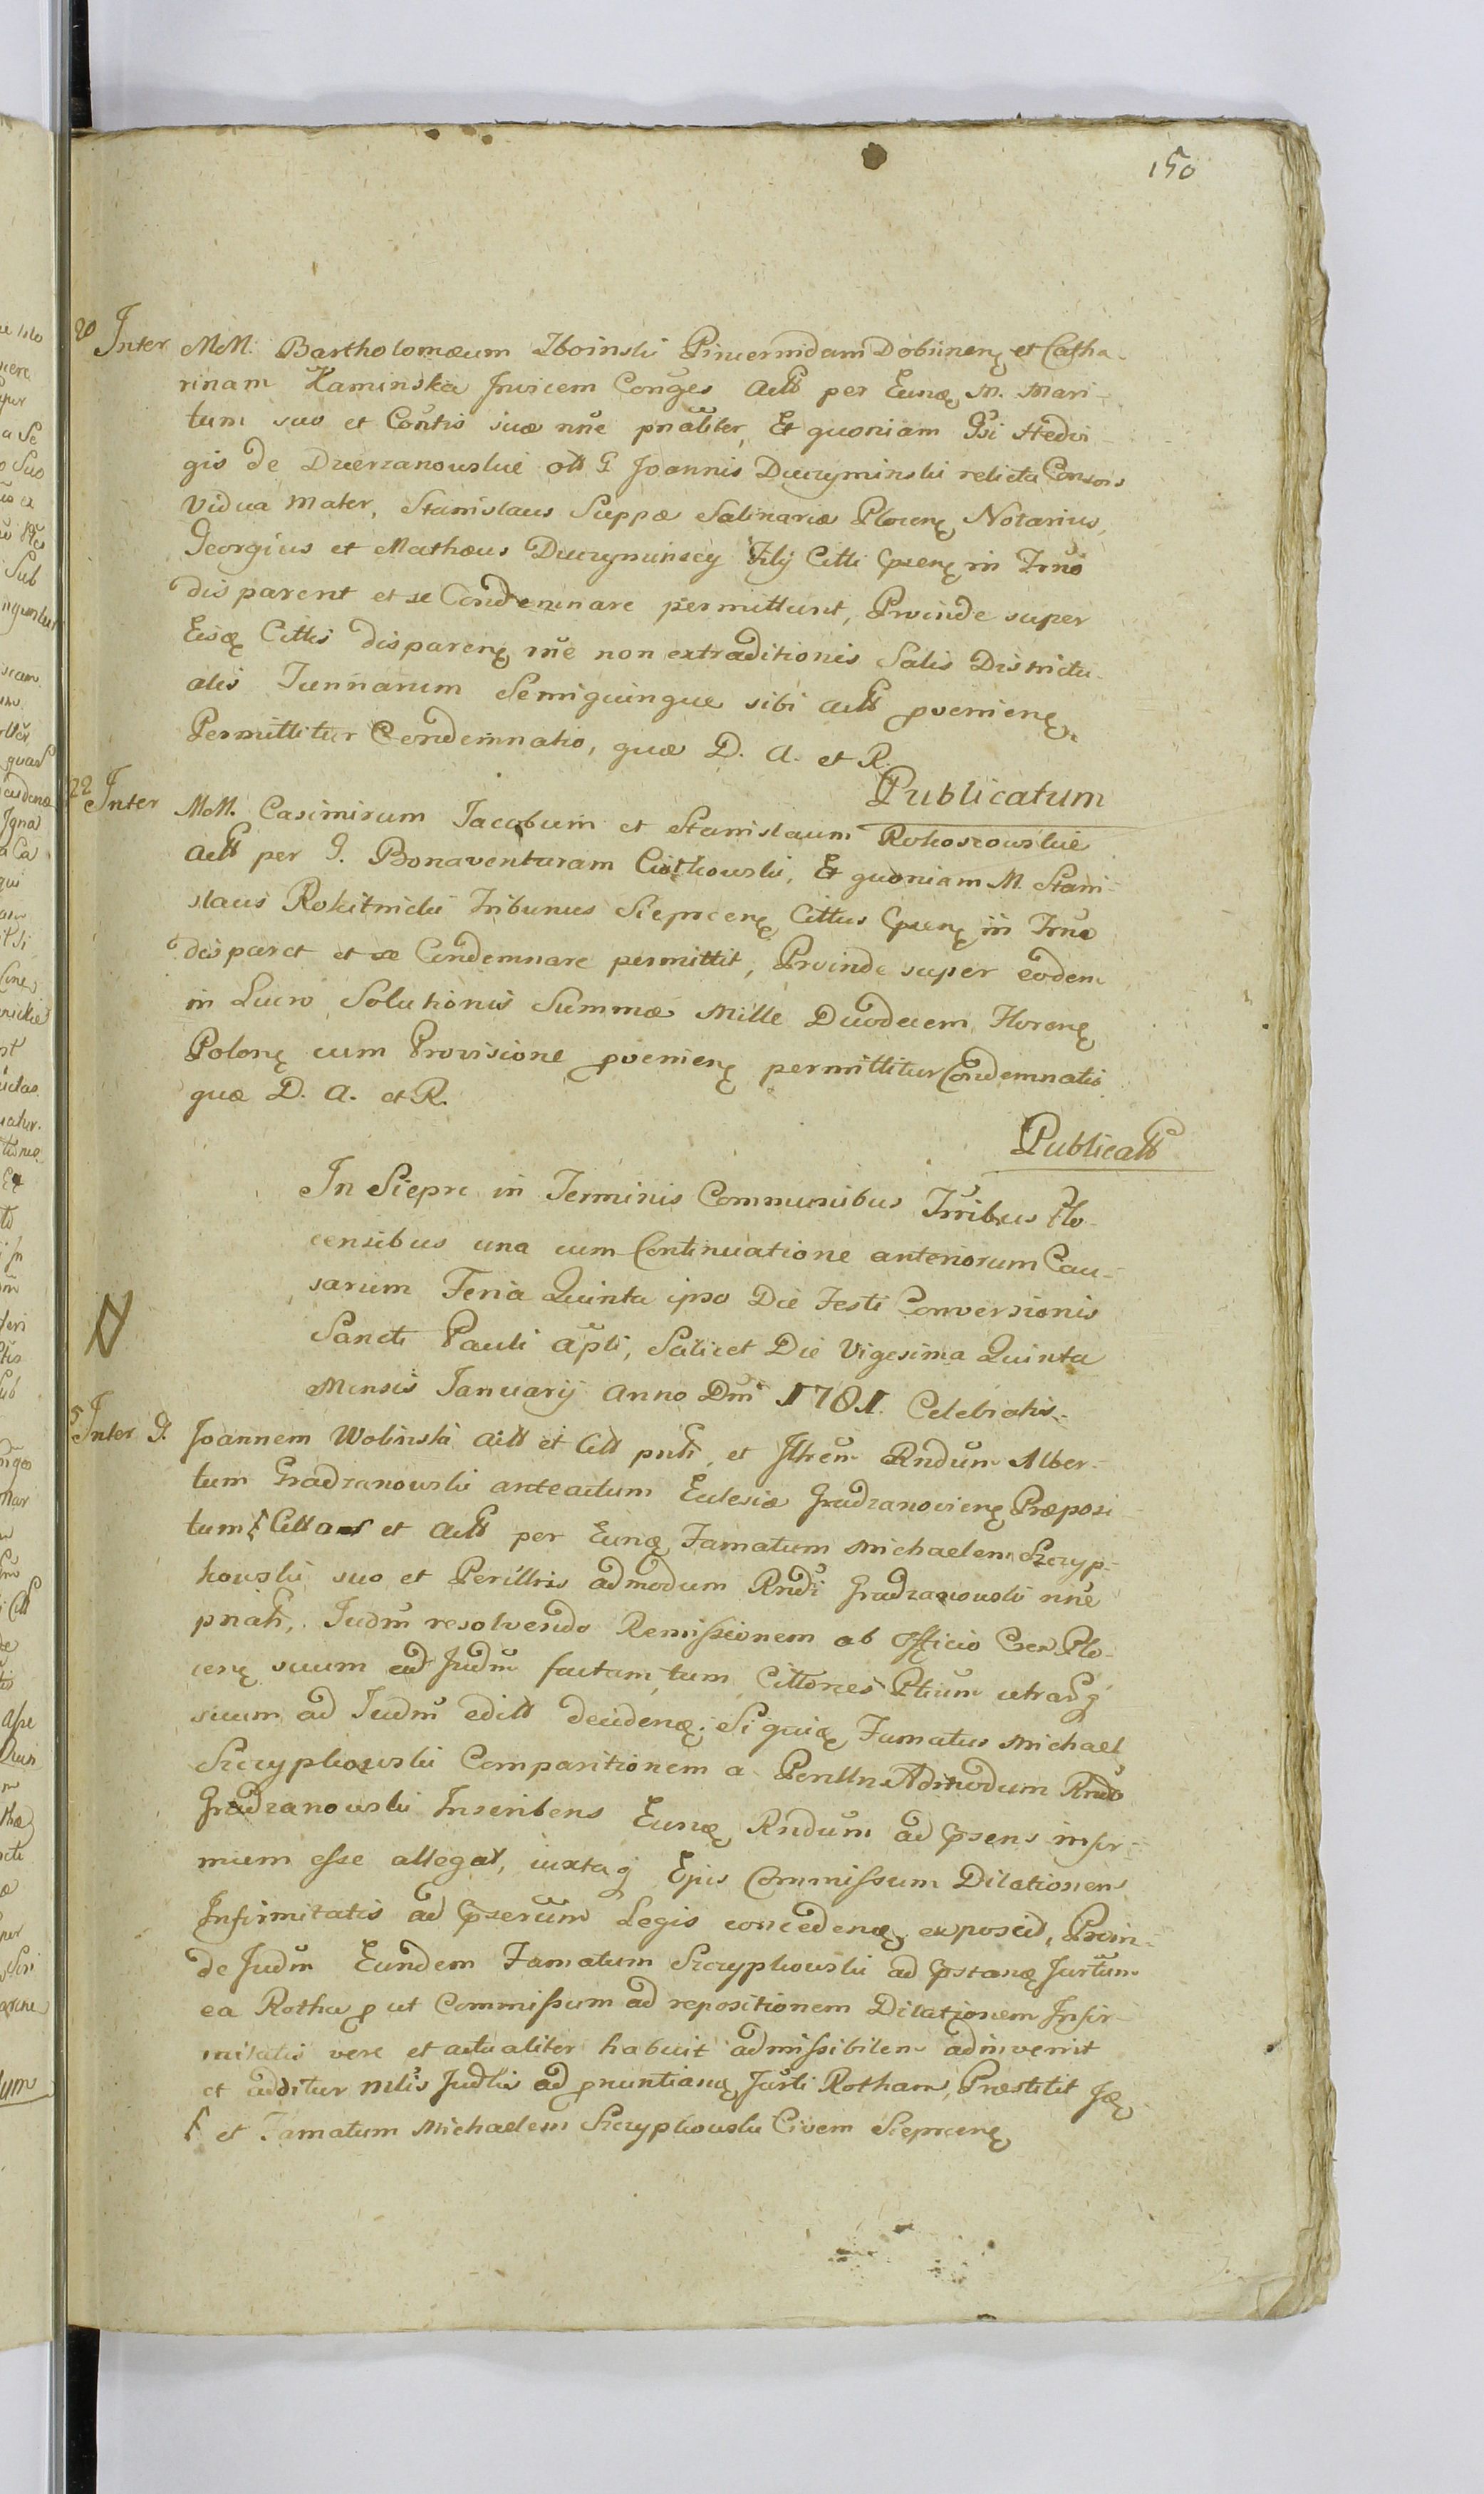 150
20 Inter MM. Bartholomæum Zboinski Pincernidam Dobrinenę et Catha-
rinam Kaminska Invicem Conges Actt per Eunę M. Mari-
tum suo et Contis suæ nne pnaliter, Et quoniam Gsi Hedvi-
gis de Dzierzanowskie ott G Joannis Duczyminski relicta Consors
Vidua Mater, Stanislaus Suppæ Salinariæ Plocenę Notarius,
Georgius et Mathæus Duczyminscy Filij Citti in Trno
disparent et se Condemnare permittunt, Proinde super
Eisę Cittis disparenę rne non extraditionis Salis Districtu-
alis Tunnarum Semiquinque sibi actt pvenienę
Permittitur Condemnatio, quæ D. A. et R.
Publicatum
22 Inter MM. Casimirum Jacobum et Stanislaum Rokoszowskie
Actt per G. Bonaventuram Ciotkowski, Et quoniam M. Stani-
slaus Rokitnicki Tribunus Sieprcenę Cittus in Trno
disparet et se Condemnare permittit, Proinde super eodem
in Lucro Solutionis Summæ Mille Duodecem Florenę
Polonę cum Provisione pvenienę permittitur Condemnatio
quæ D. A. et R.
Publicatt
In Siepre in Terminis Communibus Trribus Plo-
censibus una cum Continuatione anteriorum Cau-
sarum Feria Quinta ipso Die Festi Conversionis
Sancti Pauli Apli, Scilicet Die Vigesima Quinta
Mensis Januarij Anno Dni 1781. Celebratis.
5 Inter G. Joannem Wolinski Actt et Citt pntt, et Illrem Rndum Alber-
tum Gradzanowski anteactum Eclesiæ Gradzanovienę Præposi-
tum Citt et Actt per Eunę Famatum Michaelem Szczyp-
kowski suo et Perillris admodum Rndi Gradzanowski nne
pnatt, Judm resolvendo Remissionem ab Officio Plo-
cenę suum ad Judm factam, tum Cittones Ptium
suum ad Judm editt decidenę. Si quię Famatus Michael
Szczypkowski Comparitionem a Perillri Admodum Rndo
Gradzanowski Inscribens Eunę Rndum ad psens infir-
mum esse allegat, iuxtaq Ejus Commissum Dilationem
Infirmitatis ad Legis concedenę exposcit, Proin-
de Judm Eundem Famatum Szczypkowski ad pstanę Jurtum
ea Rotha p ut Commissum ad repositionem Dilationem Infir-
mitatis vere et actualiter habuit admissibilem adinvenit
et additur Mtlis Judtis ad pnuntianę Jurti Rotham, Præstitit Ję
et Famatum Michaelem Szczypkowski Civem Sieprcenę